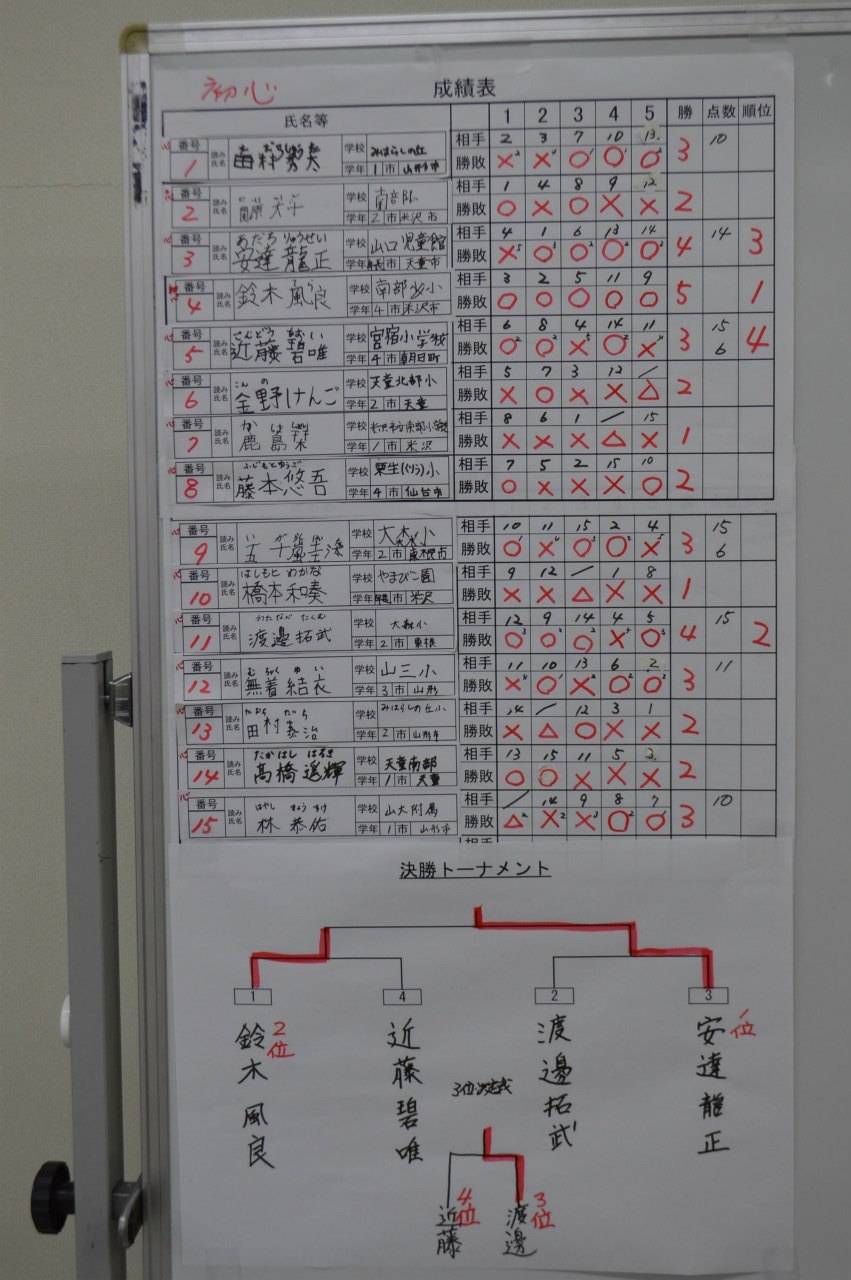 初心 成績表
氏名等 1 2 3 4 5 勝 点数 順位
番号 読み 学校 みはらしの丘 相手 2 3 7 10 13 10
1 氏名 学年 1 市 山形市 勝敗 × × ○ ○ ○ 3
番号 読み 学校 南部小 相手 1 4 8 9 12
2 氏名 学年 2 市 米沢市 勝敗 ○ × ○ × × 2
番号 読み あだち りゅうせい 学校 山口児童館 相手 4 1 6 13 14 14
3 氏名 安達龍正 学年 市 天童市 勝敗 ×5 ○3 ○2 ○2 ○2 4 3
番号 読み 学校 南部小 相手 3 2 5 11 9
4 氏名 鈴木風良 学年 4 市 米沢市 勝敗 ○ ○ ○ ○ ○ 5 1
番号 読み こんどう あおい 学校 宮宿小学校 相手 6 8 4 14 11 15
5 氏名 近藤碧唯 学年 4 市 朝日町 勝敗 ○2 ○2 ×5 ○2 ×4 3 6 4
番号 読み こんの 学校 天童北部小 相手 5 7 3 12 ／
6 氏名 金野けんご 学年 2 市 天童 勝敗 × ○ × × △ 2
番号 読み かしま 学校 米沢市立南部小学校 相手 8 6 1 ／ 15
7 氏名 鹿島 学年 1 市 米沢 勝敗 × × × △ × 1
番号 読み ふじもとゆうご 学校 栗生(くりう)小 相手 7 5 2 15 10
8 氏名 藤本悠吾 学年 4 市 仙台市 勝敗 ○ × × × ○ 2
番号 読み 学校 大森小 相手 10 11 15 2 4 15
9 氏名 五十嵐 学年 2 市 東根市 勝敗 ○1 ×4 ○3 ○2 ×5 3 6
番号 読み はしもと わかな 学校 やまびこ園 相手 9 12 ／ 1 8
10 氏名 橋本和奏 学年 市 米沢 勝敗 × × △ × × 1
番号 読み わたなべ たくむ 学校 大森小 相手 12 9 14 4 5 15
11 氏名 渡邊拓武 学年 2 市 東根 勝敗 ○3 ○3 ○2 ×5 ○3 4 2
番号 読み むちゃく ゆい 学校 山三小 相手 11 10 13 6 2 11
12 氏名 無着結衣 学年 3 市 山形 勝敗 ×4 ○1 ×2 ○2 ○2 3
番号 読み たむら たいち 学校 みはらしの丘小 相手 14 ／ 12 3 1
13 氏名 田村泰治 学年 2 市 山形市 勝敗 × △ ○ × × 2
番号 読み たかはし はるき 学校 天童南部 相手 13 15 11 5 3
14 氏名 髙橋遥輝 学年 1 市 天童 勝敗 ○ ○ × × × 2
番号 読み はやし きょうすけ 学校 山大附属 相手 ／ 14 9 8 7 10
15 氏名 林恭佑 学年 1 市 山形市 勝敗 △2 ×2 ×3 ○2 ○1 3
決勝トーナメント
1 4 2 3
鈴木風良 2位
近藤碧唯
渡邊拓武
安達龍正 1位
3位決定戦
近藤 4位
渡邊 3位